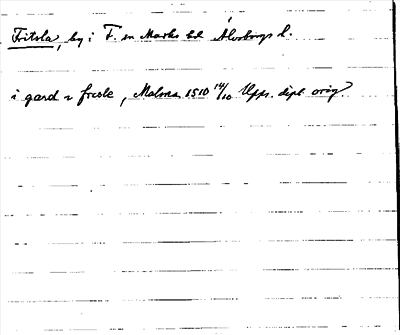 Fritsla, by i F. sn Marks hd Älvsborgs l.
i gard z fresle, Malma 1510 14/10 Upps. dipl. orig